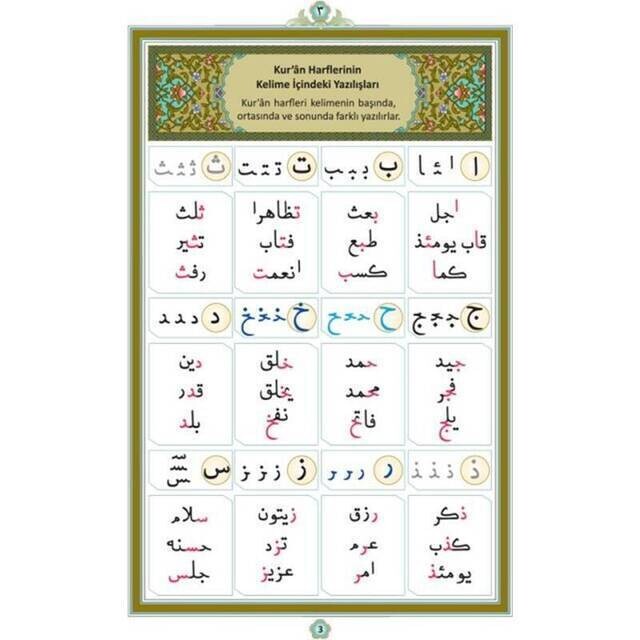 ٣
Kur’ân Harflerinin
Kelime İçindeki Yazılışları
Kur’ân harfleri kelimenin başında,
ortasında ve sonunda farklı yazılırlar.
ا ا ئا ا
ب ببب
ت تتت
ث ثثث
اجل
قاب يومئذ
كما
بعث
طبع
كسب
تظاهرا
فتاب
انعمت
ثلث
تثير
رفث
ج ججج
ح ححح
خ خخخ
د د د د
جيد
فجر
يلج
حمد
محمد
فاتح
خلق
يخلق
نفخ
دين
قدر
بلد
ذ ذ ذ ذ
ر ر ر ر
ز ز ز ز
س سسس
ذكر
كذب
يومئذ
رزق
عرم
امر
زيتون
تزد
عزيز
سلام
حسنه
جلس
3